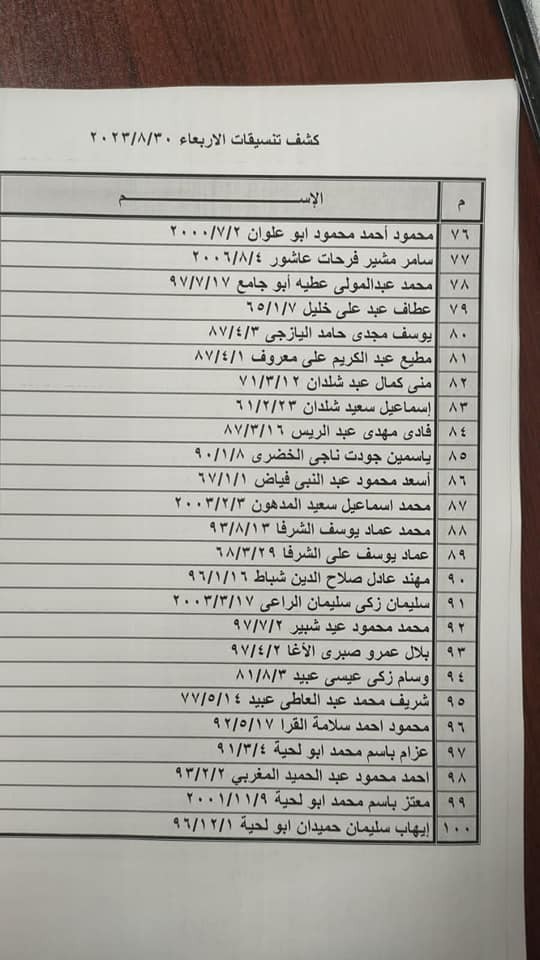 كشف تنسيقات الاربعاء ٢٠٢٣/٨/٣٠
م الإســـــــــــم
٧٦ محمود أحمد محمود ابو علوان ٢٠٠٠/٧/٢
٧٧ سامر مشير فرحات عاشور ٢٠٠٦/٨/٤
٧٨ محمد عبدالمولى عطيه أبو جامع ٩٧/٧/١٧
٧٩ عطاف عبد على خليل ٦٥/١/٧
٨٠ يوسف مجدى حامد اليازجى ٨٧/٤/٣
٨١ مطيع عبد الكريم على معروف ٨٧/٤/١
٨٢ منى كمال عبد شلدان ٧١/٣/١٢
٨٣ إسماعيل سعيد شلدان ٦١/٢/٢٣
٨٤ فادى مهدى عبد الريس ٨٧/٣/١٦
٨٥ ياسمين جودت ناجى الخضرى ٩٠/١/٨
٨٦ أسعد محمود عبد النبى فياض ٦٧/١/١
٨٧ محمد اسماعيل سعيد المدهون ٢٠٠٣/٢/٣
٨٨ محمد عماد يوسف الشرفا ٩٣/٨/١٣
٨٩ عماد يوسف على الشرفا ٦٨/٣/٢٩
٩٠ مهند عادل صلاح الدين شباط ٩٦/١/١٦
٩١ سليمان زكى سليمان الراعى ٢٠٠٣/٣/١٧
٩٢ محمد محمود عيد شبير ٩٧/٧/٢
٩٣ بلال عمرو صبرى الأغا ٩٧/٤/٢
٩٤ وسام زكى عيسى عبيد ٨١/٨/٣
٩٥ شريف محمد عبد العاطى عبيد ٧٧/٥/١٤
٩٦ محمود احمد سلامة القرا ٩٢/٥/١٧
٩٧ عزام باسم محمد ابو لحية ٩١/٣/٤
٩٨ احمد محمود عبد الحميد المغربي ٩٣/٢/٢
٩٩ معتز باسم محمد ابو لحية ٢٠٠١/١١/٩
١٠٠ إيهاب سليمان حميدان ابو لحية ٩٦/١٢/١